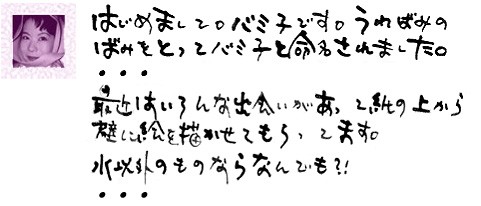 はじめまして。バミ子です。うわばみの
ばみをとってバミ子と命名されました。
・・・
最近はいろんな出会いがあって紙の上から
壁に絵を描かせてもらってます。
水以外のものならなんでも?!
・・・